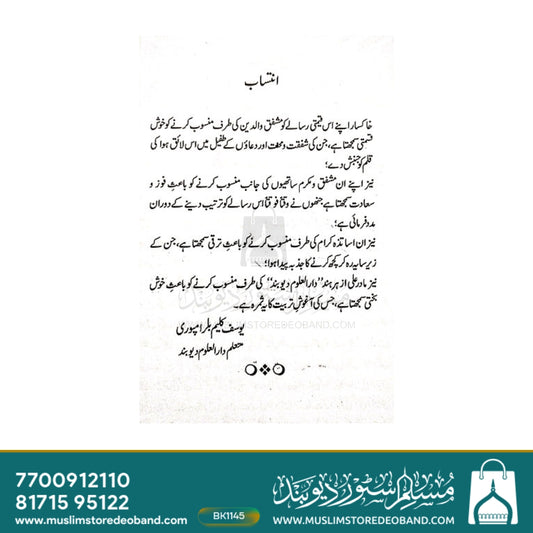 انتساب
خاکسار اپنے اس قیمتی رسالے کو مشفق والدین کی طرف منسوب کرنے کو خوش
قسمتی سمجھتا ہے، جن کی شفقت ومحنت اور دعاؤں کے طفیل میں اس لائق ہوا کی
قلم کو جنبش دے؛
نیز اپنے ان مشفق و مکرم ساتھیوں کی جانب منسوب کرنے کو باعثِ فوز و
سعادت سمجھتا ہے جنھوں نے وقتاً فوقتاً اس رسالے کو ترتیب دینے کے دوران
مدد فرمائی ہے؛
نیز ان اساتذہ کرام کی طرف منسوب کرنے کو باعثِ ترقی سمجھتا ہے، جن کے
زیر سایہ رہ کر کچھ کرنے کا جذبہ پیدا ہوا؛
نیز مادر علمی ازہر ہند "دارالعلوم دیوبند" کی طرف منسوب کرنے کو باعثِ خوش
بختی سمجھتا ہے، جس کی آغوشِ تربیت کا یہ ثمرہ ہے۔
یوسف کلیم بلرامپوری
متعلم دارالعلوم دیوبند
مسلم سٹور دیوبند
MUSLIMSTOREDEOBAND.COM
7700912110
81715 95122
www.muslimstoredeoband.com
BK1145
مسلم سٹور دیوبند
WWW.MUSLIMSTOREDEOBAND.COM